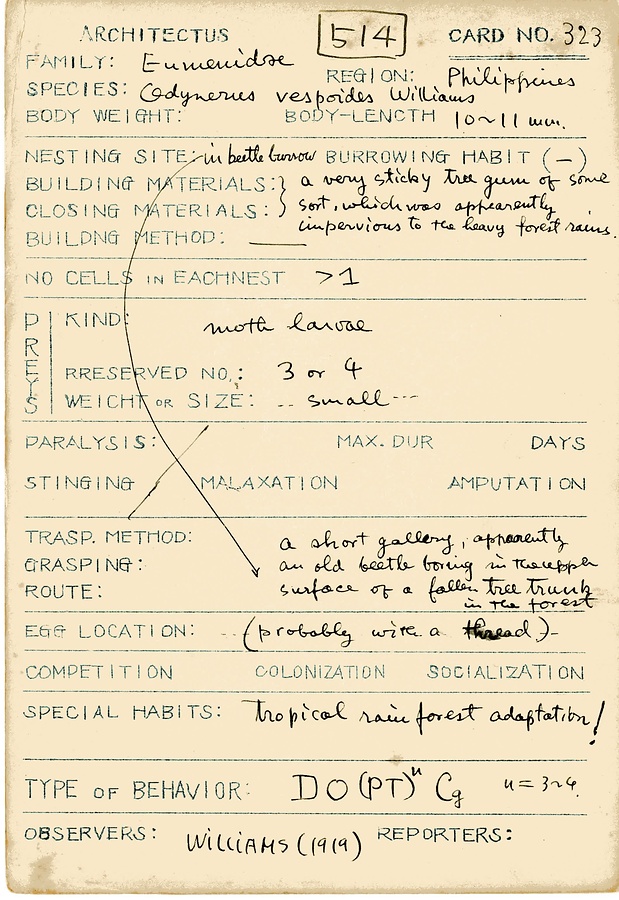 ARCHITECTUS 514 CARD NO. 323
FAMILY: Eumenidae
REGION: Philippines
SPECIES: Odynerus vespoides Williams
BODY WEIGHT: BODY-LENGTH 10~11 mm.
NESTING SITE: in beetle burrow BURROWING HABIT (-)
BUILDING MATERIALS: } a very sticky tree gum of some
CLOSING MATERIALS: } sort, which was appearently
BUILDNG METHOD: —— impervious to the heavy forest rains.
NO CELLS IN EACHNEST >1
PREYS
KIND: moth larvae
RRESERVED NO.: 3 or 4
WEIGHT OR SIZE: .. small ...
PARALYSIS: MAX. DUR DAYS
STINGING MALAXATION AMPUTATION
TRASP. METHOD: a short gallery, apparently
GRASPING: an old beetle boring in the upper
ROUTE: surface of a fallen tree trunk
in the forest
EGG LOCATION: ... (probably with a thread)-
COMPETITION COLONIZATION SOCIALIZATION
SPECIAL HABITS: tropical rain forest adaptation!
TYPE OF BEHAVIOR: DO(PT)ⁿ Cg n=3~4.
OBSERVERS: WILLIAMS (1919) REPORTERS: